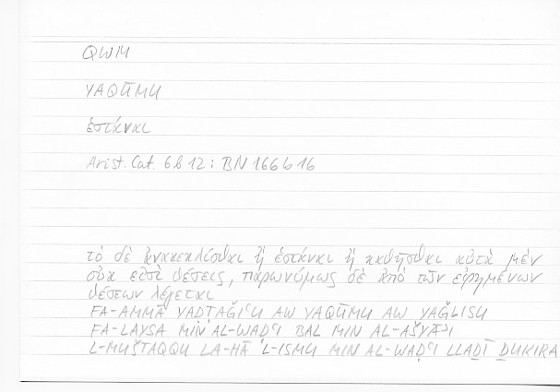 QWM
YAQŪMU
ἑστάναι
Arist. Cat. 6b12: BN 166b16
τὸ δὲ ἀνακεκλίσθαι ἢ ἑστάναι ἢ καθῆσθαι αὐτὰ μὲν
οὐκ εἰσὶ θέσεις, παρωνύμως δὲ ἀπὸ τῶν εἰρημένων
θέσεων λέγεται
FA-AMMĀ YAḌṬAǦIʿU AW YAQŪMU AW YAǦLISU
FA-LAYSA MIN AL-WAḌʿI BAL MIN AL-AŠYĀʾI
L-MUŠTAQQU LA-HĀ L-ISMU MIN AL-WAḌʿI LLAḎĪ ḎUKIRA